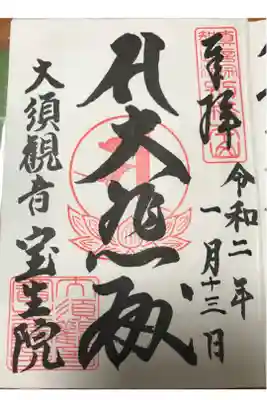 奉拝
令和二年
一月十三日
大悲殿
大須観音
宝生院